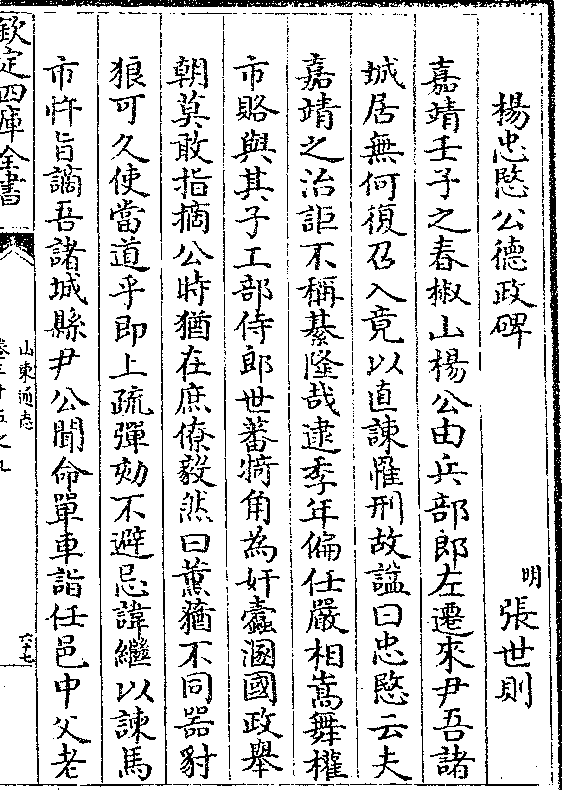 楊忠愍公德政碑
明 張世則
嘉靖壬子之春椒山楊公由兵部郎左遷來尹吾諸
城居無何復召入竟以直諫罹刑故謚曰忠愍云夫
嘉靖之治詎不稱綦隆哉逮季年偏任嚴相嵩舞權
市賂與其子工部侍郎世蕃犄角為奸蠧溷國政舉
朝莫敢指摘公時猶在庶僚毅然曰薰蕕不同器豺
狼可久使當道乎即上疏彈劾不避忌諱繼以諫馬
市忤旨謫吾諸城縣尹公聞命單車詣任邑中父老
欽定四庫全書
山東通志
卷三十五之九
六十七